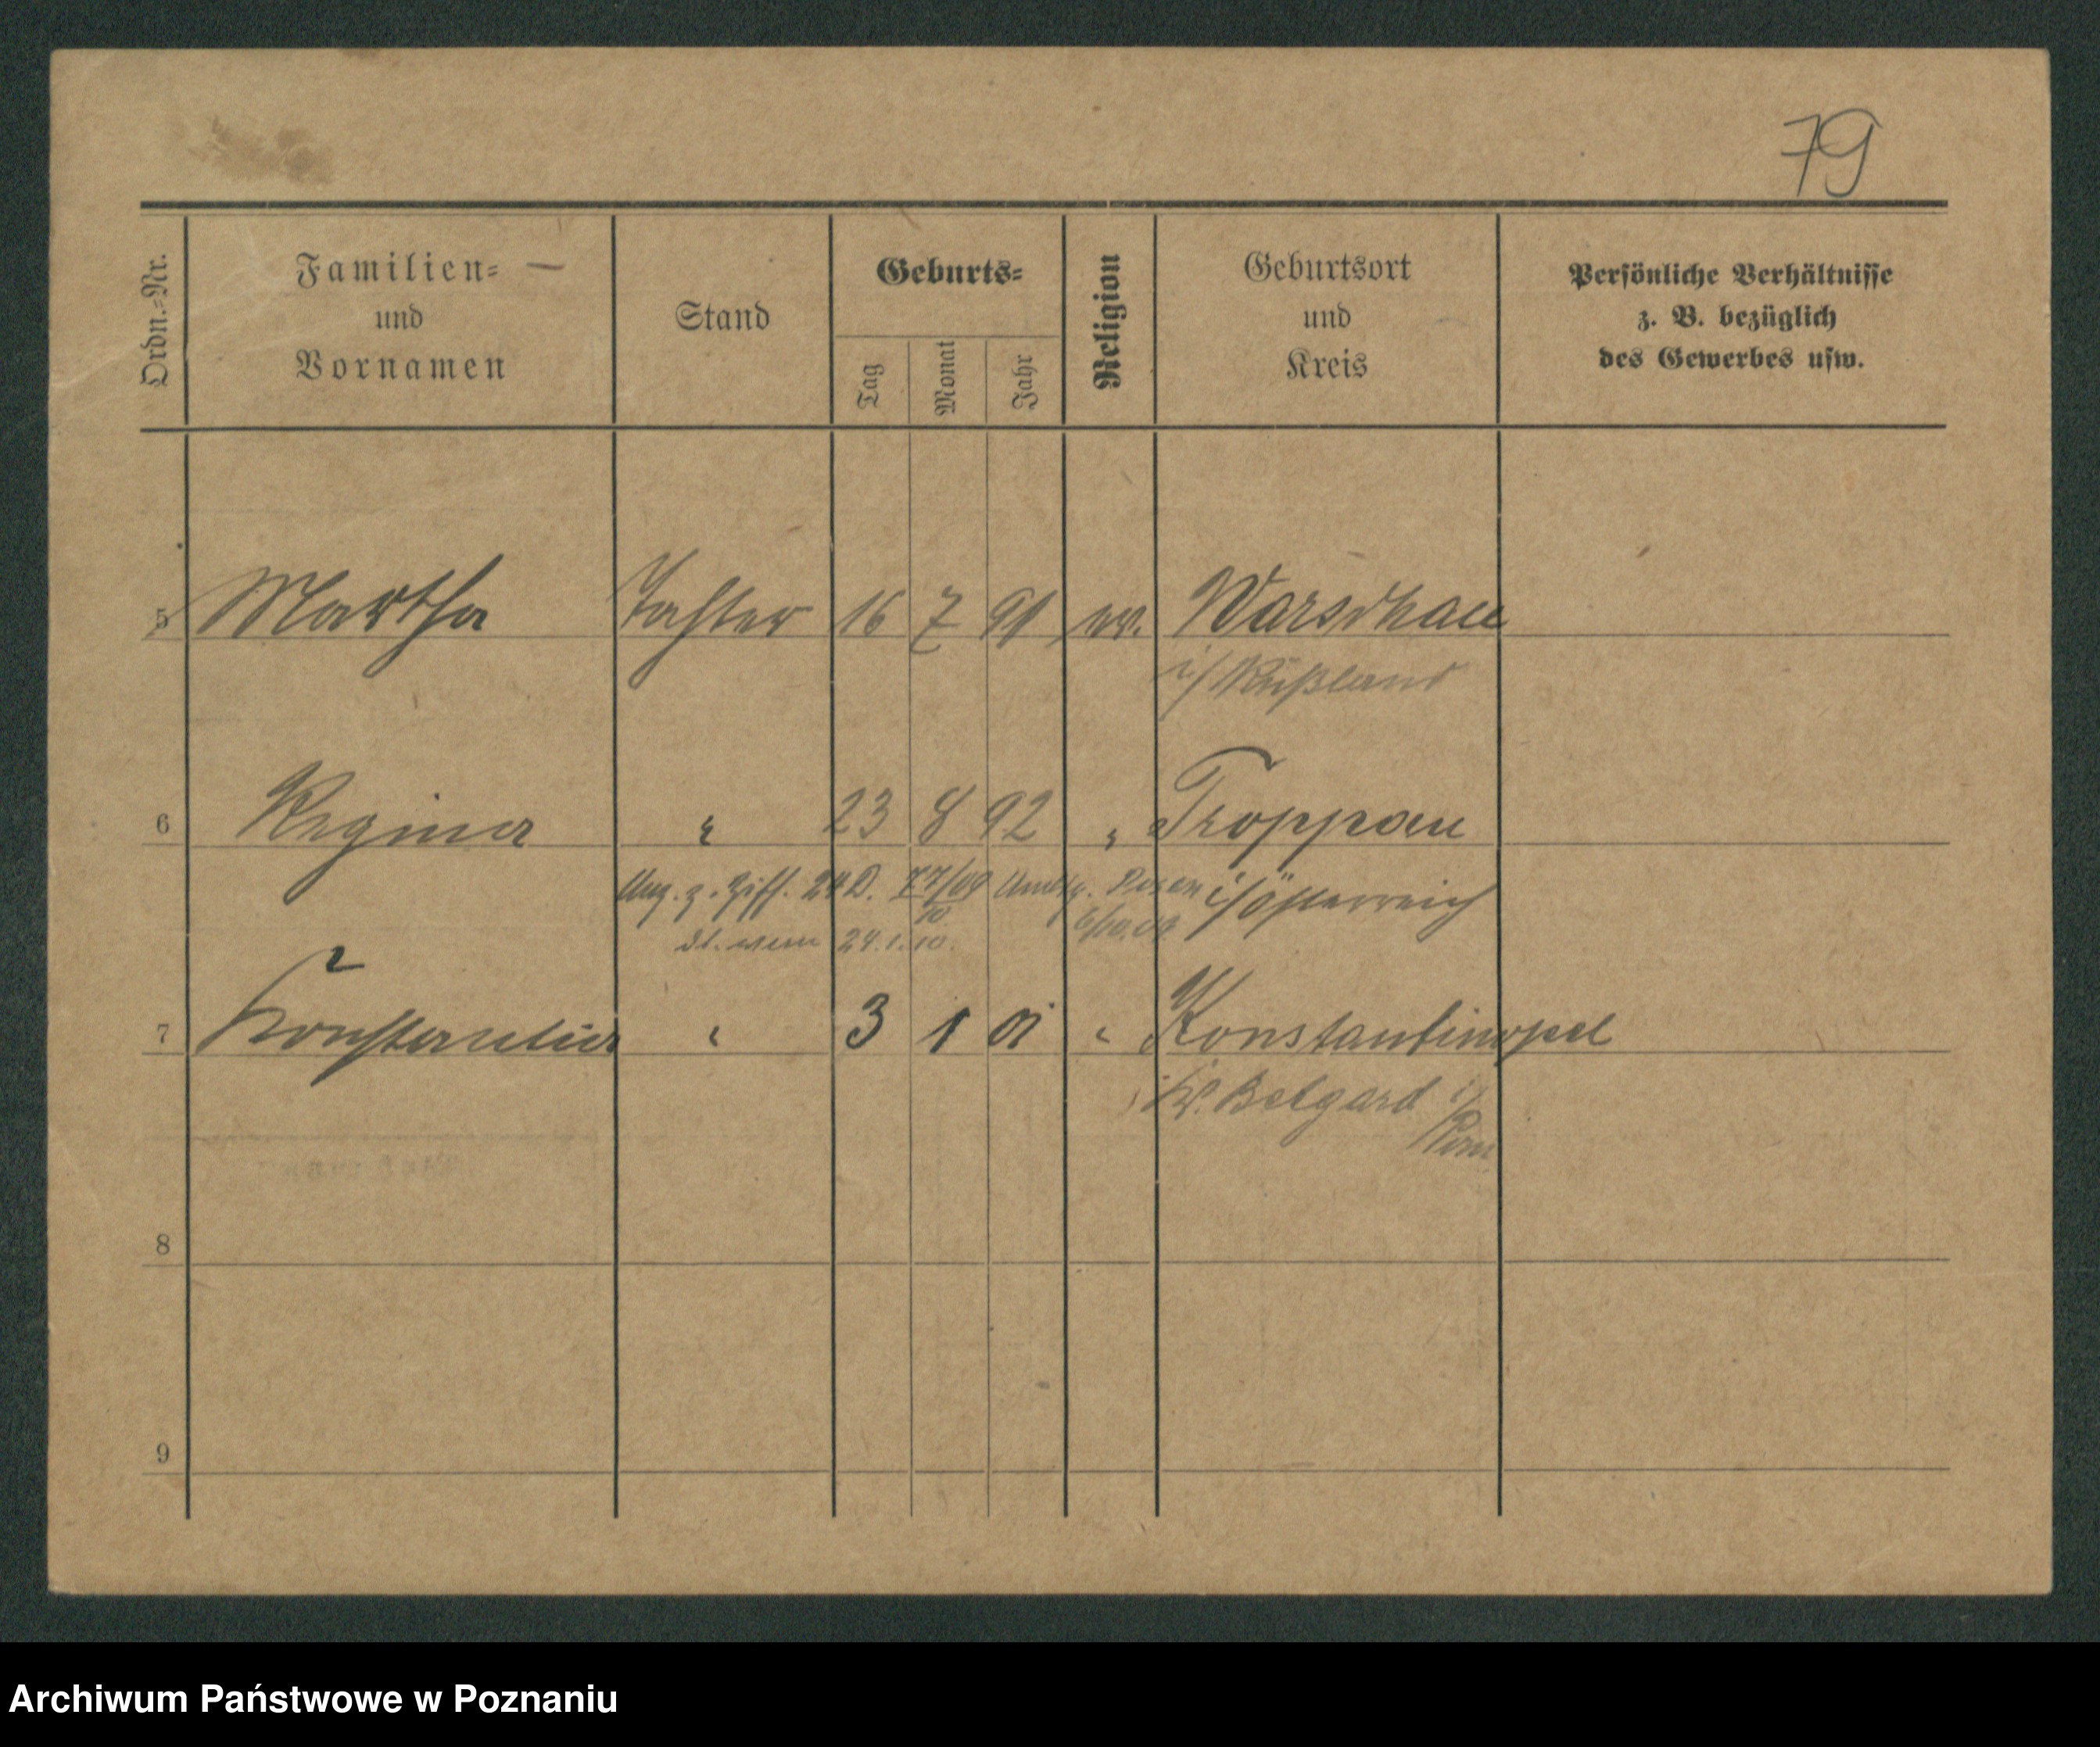 79
Ordn.-Nr.
Familien-
und
Vornamen
Stand
Geburts-
Tag
Monat
Jahr
Religion
Geburtsort
und
Kreis
Persönliche Verhältnisse
z. B. bezüglich
des Gewerbes usw.
5 Martha Tochter 16 7 91 ev. Warschau
i/Rußland
6 Regina " 23 8 92 " Troppau
Ang. z. Ziff. 24 D. Amtsg. Posen i/Österreich
24.1.10.
7 Konstantia " 3 1 01 " Konstantinopel
Kr. Belgard i/
Pom.
8
9
Archiwum Państwowe w Poznaniu